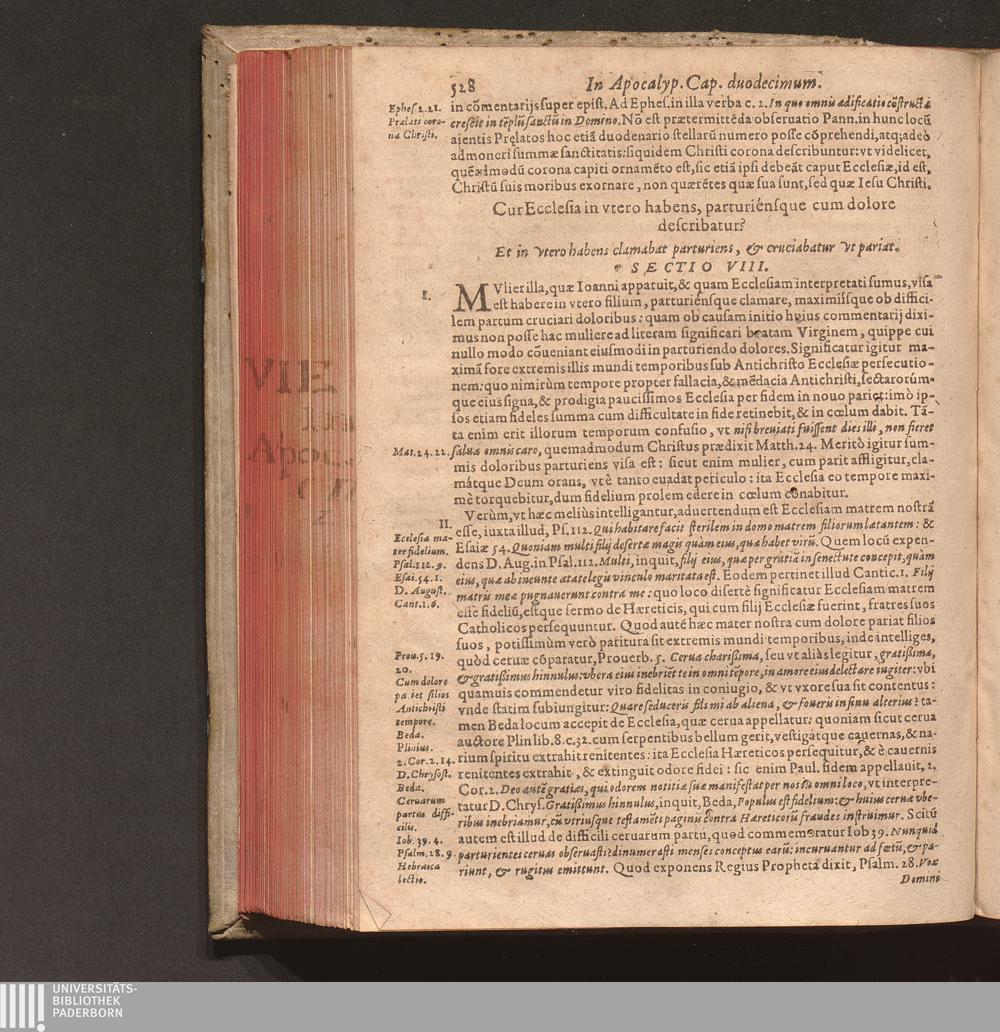 528
In Apocalyp. Cap. duodecimum.
Ephes. 2. 21.
Prælati coro-
na Christi.
in cōmentarijs super epist. Ad Ephes. in illa verba c. 2. In quo omnis ædificatio cōstructa
crescit in tēplū sanctū in Domino. Nō est prætermittēda obseruatio Pann. in hunc locū
aientis Pręlatos hoc etiā duodenario stellarū numero posse cōprehendi, atq; adeò
admoneri summæ sanctitatis: siquidem Christi corona describuntur: vt videlicet,
quēadmodū corona capiti ornamēto est, sic etiā ipsi debeāt caput Ecclesiæ, id est,
Christū suis moribus exornare, non quærētes quæ sua sunt, sed quæ Iesu Christi.
Cur Ecclesia in vtero habens, parturiénsque cum dolore
describatur?
Et in vtero habens clamabat parturiens, & cruciabatur vt pariat.
SECTIO VIII.
I.
MVlier illa, quæ Ioanni apparuit, & quam Ecclesiam interpretati sumus, visa
est habere in vtero filium, parturiénsque clamare, maximísque ob diffici-
lem partum cruciari doloribus: quam ob causam initio huius commentarij dixi-
mus non posse hac muliere ad literam significari beatam Virginem, quippe cui
nullo modo cōueniant eiusmodi in parturiendo dolores. Significatur igitur ma-
ximā fore extremis illis mundi temporibus sub Antichristo Ecclesiæ persecutio-
nem: quo nimirùm tempore propter fallacia, & mēdacia Antichristi, sectarorúm-
que eius signa, & prodigia paucissimos Ecclesia per fidem in nouo pariet: imò ip-
sos etiam fideles summa cum difficultate in fide retinebit, & in cœlum dabit. Tā-
ta enim erit illorum temporum confusio, vt nisi breuiati fuissent dies illi, non fieret
Mat. 24. 22.
salua omnis caro, quemadmodum Christus prædixit Matth. 24. Meritò igitur sum-
mis doloribus parturiens visa est: sicut enim mulier, cum parit affligitur, cla-
mátque Deum orans, vt è tanto euadat periculo: ita Ecclesia eo tempore maxi-
mè torquebitur, dum fidelium prolem edere in cœlum conabitur.
II.
Ecclesia ma-
ter fidelium.
Psal. 112. 9.
Esai. 54. 1.
D. August.
Cant. 1. 6.
Verùm, vt hæc meliùs intelligantur, aduertendum est Ecclesiam matrem nostrā
esse, iuxta illud, Ps. 112. Qui habitare facit sterilem in domo matrem filiorum lætantem: &
Esaiæ 54. Quoniam multi filij desertæ magis quàm eius, quæ habet virū. Quem locū expen-
dens D. Aug. in Psal. 112. Multi, inquit, filij eius, quæ per gratiā in senectute concepit, quàm
eius, quæ ab ineunte ætate legis vinculo maritata est. Eodem pertinet illud Cantic. 1. Filij
matris meæ pugnauerunt contra me: quo loco disertè significatur Ecclesiam matrem
esse fideliū, estque sermo de Hæreticis, qui cum filij Ecclesiæ fuerint, fratres suos
Catholicos persequuntur. Quod autē hæc mater nostra cum dolore pariat filios
suos, potissimùm verò paritura sit extremis mundi temporibus, inde intelliges,
Prou. 5. 19.
20.
Cum dolore
pariet filios
Antichristi
tempore.
Beda.
Plinius.
2. Cor. 2. 14.
D. Chrysost.
Beda.
Ceruarum
partus diffi-
cilis.
Iob. 39. 4.
Psalm. 28. 9.
Hebraica
lectio.
quòd ceruæ cōparatur, Prouerb. 5. Cerua charissima, seu vt aliàs legitur, gratissima,
& gratissimus hinnulus: vbera eius inebrient te in omni tēpore, in amore eius delectare iugiter: vbi
quamuis commendetur viro fidelitas in coniugio, & vt vxore sua sit contentus:
vnde statim subiungitur: Quare seduceris fili mi ab aliena, & foueris in sinu alterius? ta-
men Beda locum accepit de Ecclesia, quæ cerua appellatur: quoniam sicut cerua
auctore Plin lib. 8. c. 32. cum serpentibus bellum gerit, vestigátque cauernas, & na-
rium spiritu extrahit renitentes: ita Ecclesia Hæreticos persequitur, & è cauernis
renitentes extrahit, & extinguit odore fidei: sic enim Paul. fidem appellauit, 2.
Cor. 2. Deo autē gratias, qui odorem notitiæ suæ manifestat per nos in omni loco, vt interpre-
tatur D. Chrys. Gratissimus hinnulus, inquit, Beda, Populus est fidelium: & huius ceruæ vbe-
ribus inebriamur, cū vtriusque testamēti paginis contra Hæreticorū fraudes instruimur. Scitū
autem est illud de difficili ceruarum partu, quod commemoratur Iob 39. Nunquid
parturientes ceruas obseruasti? dinumerasti menses conceptus earū: incuruantur ad fœtū, & pa-
riunt, & rugitus emittunt. Quod exponens Regius Propheta dixit, Psalm. 28. Vox
Domini
UNIVERSITÄTS-
BIBLIOTHEK
PADERBORN